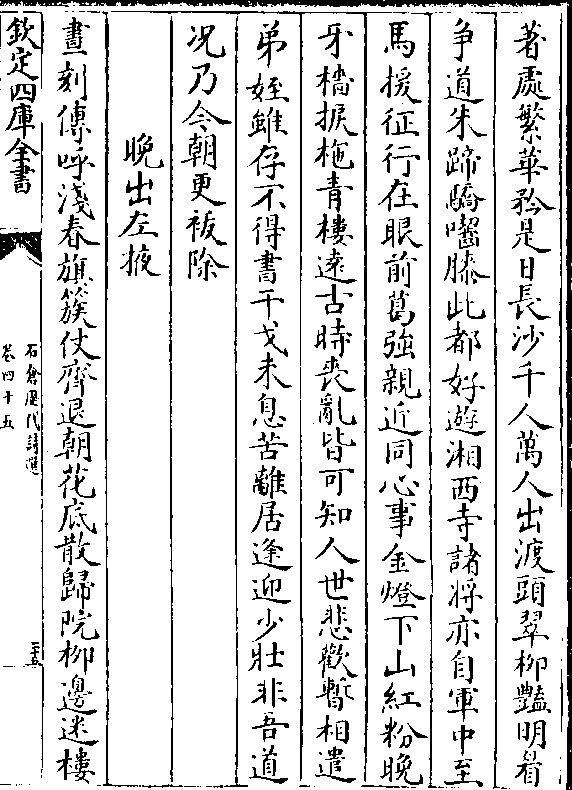 著處繁華矜是日長沙千人萬人出渡頭翠柳豔明眉
争道朱蹄驕囓膝此都好遊湘西寺諸將亦自軍中至
馬援征行在眼前葛強親近同心事金燈下山紅粉晚
牙檣捩柁青樓遠古時喪亂皆可知人世悲歡暫相遣
弟姪雖存不得書干戈未息苦離居逢迎少壯非吾道
况乃今朝更祓除
晚出左掖
晝刻傳呼淺春旗簇仗齊退朝花底散歸院柳邊迷樓
欽定四庫全書
石倉歷代詩選
卷四十五
二十五